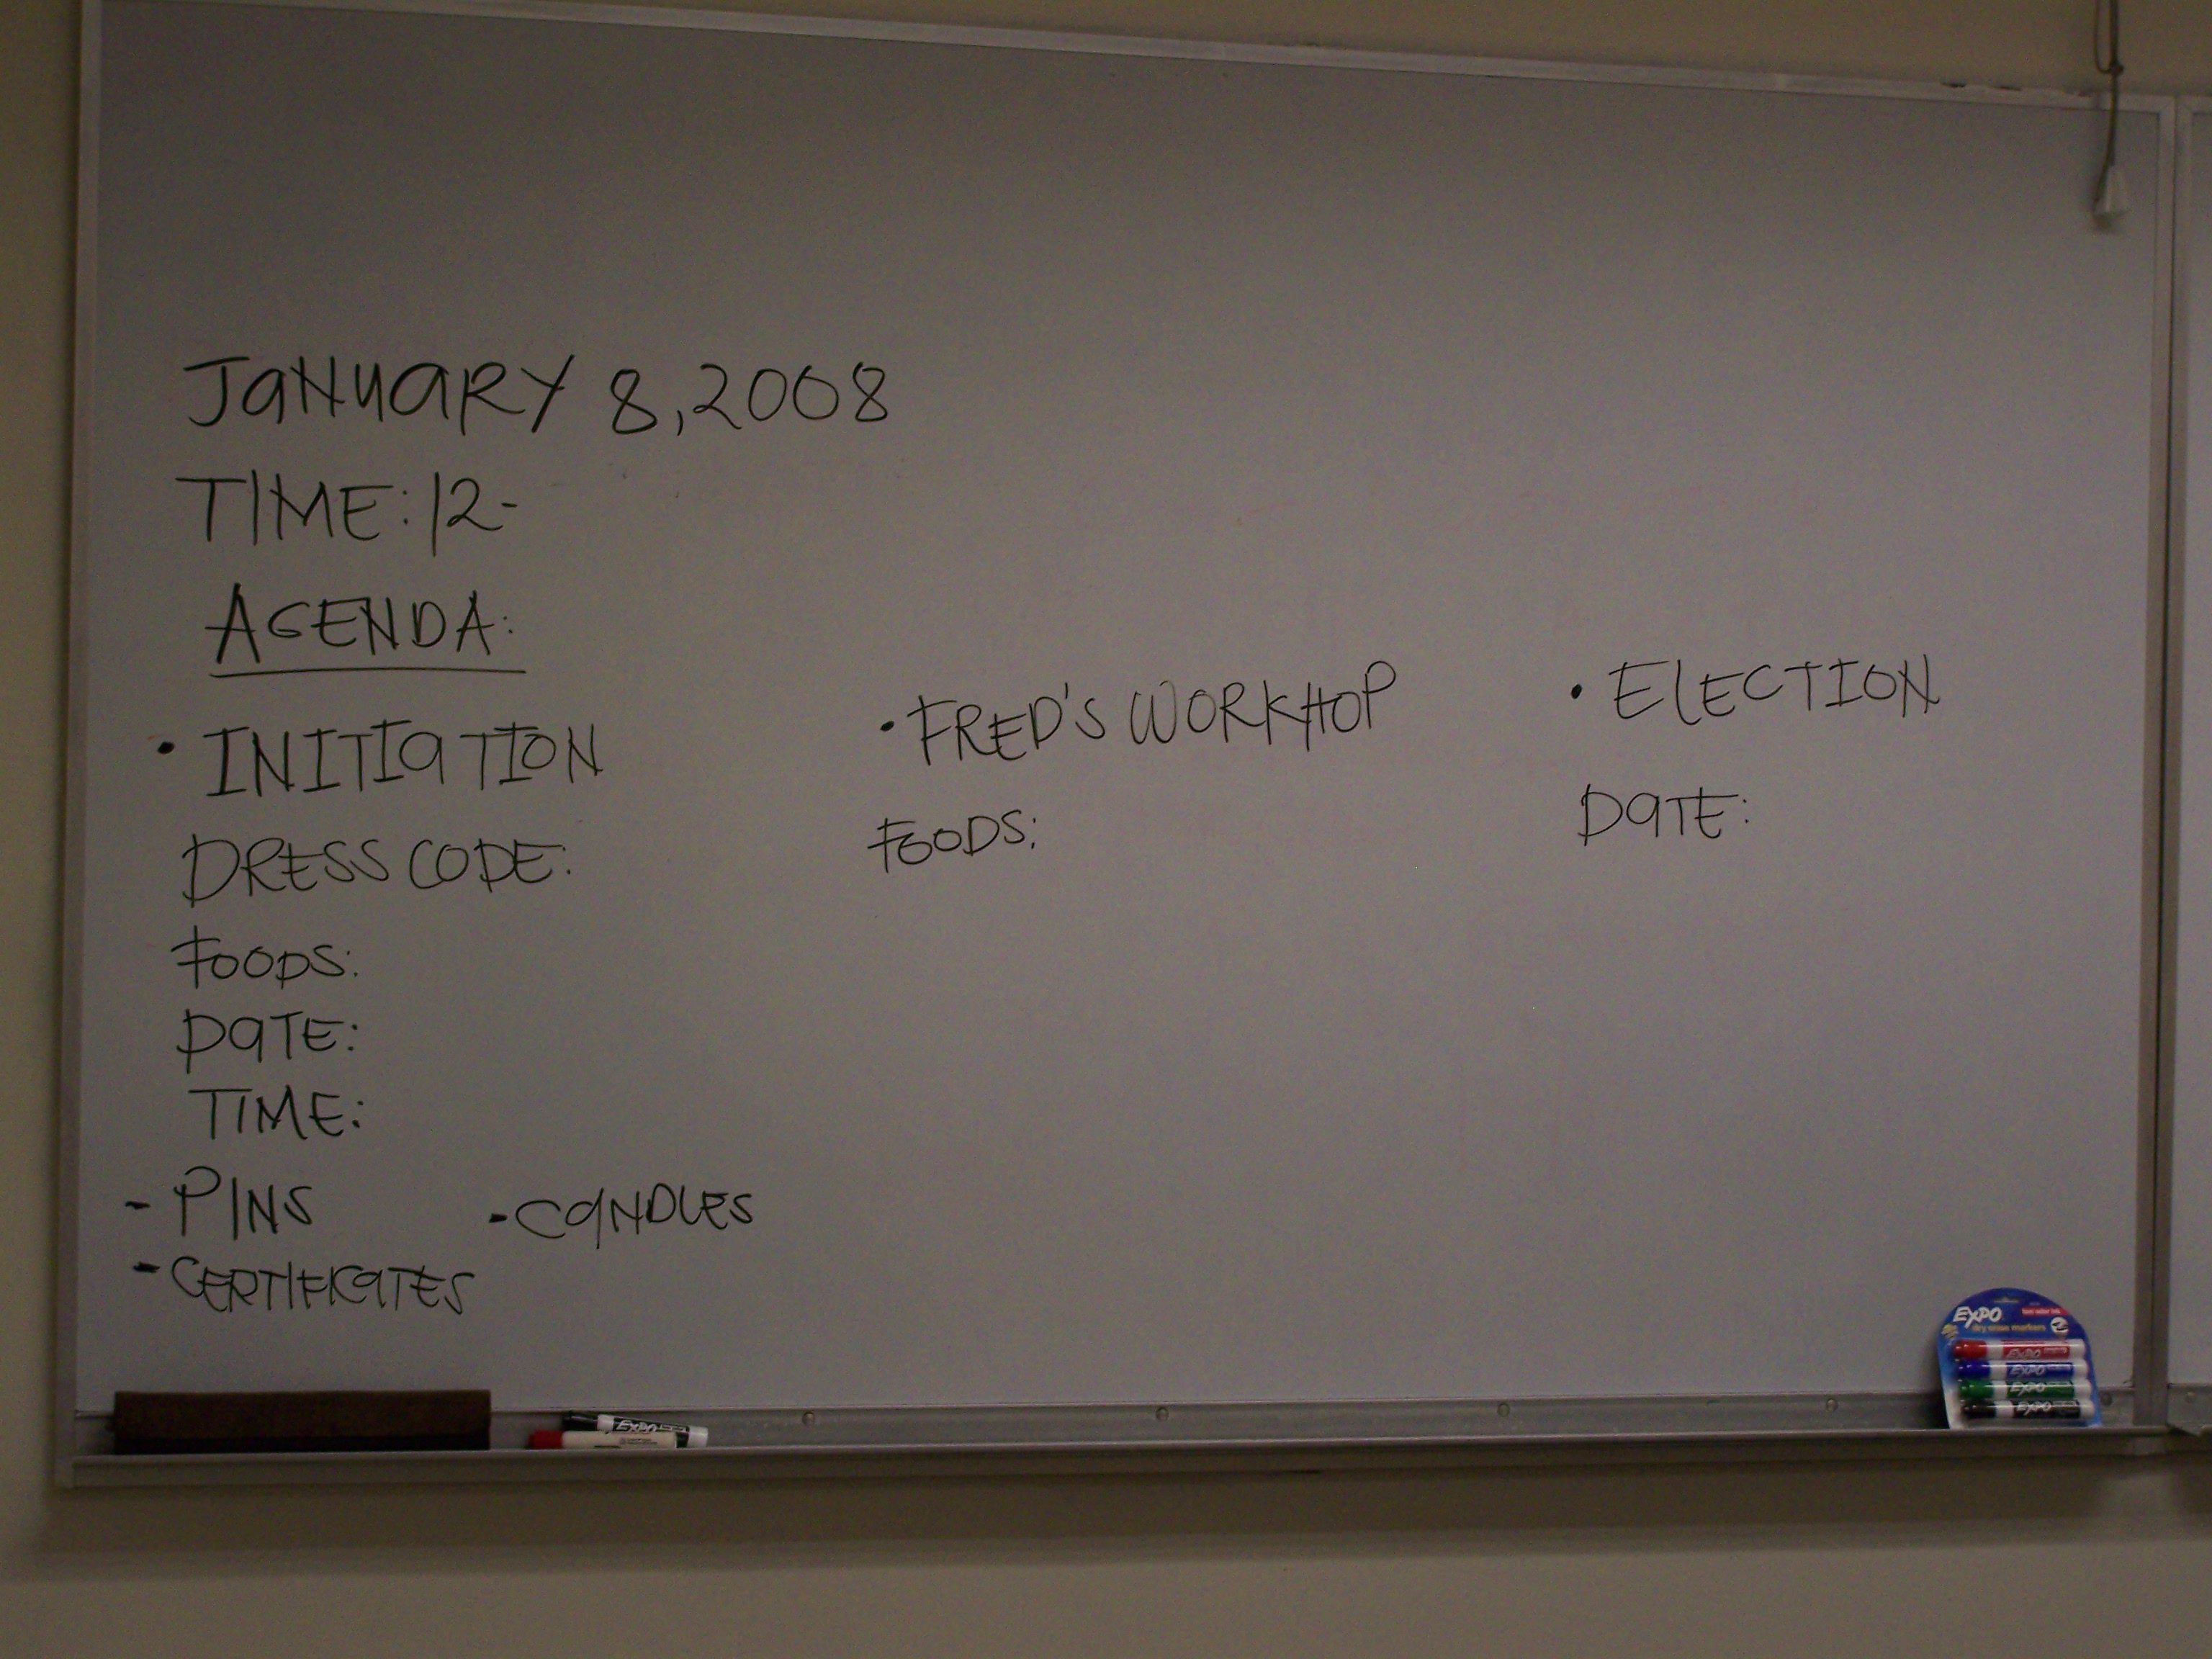 JANUARY 8, 2008
TIME: 12-
AGENDA:
• INITIATION
DRESS CODE:
FOODS:
DATE:
TIME:
- PINS
- CANDLES
- CERTIFICATES
• FRED'S WORKHOP
FOODS:
• ELECTION
DATE:
EXPO
dry erase markers
EXPO
EXPO
EXPO
EXPO
EXPO